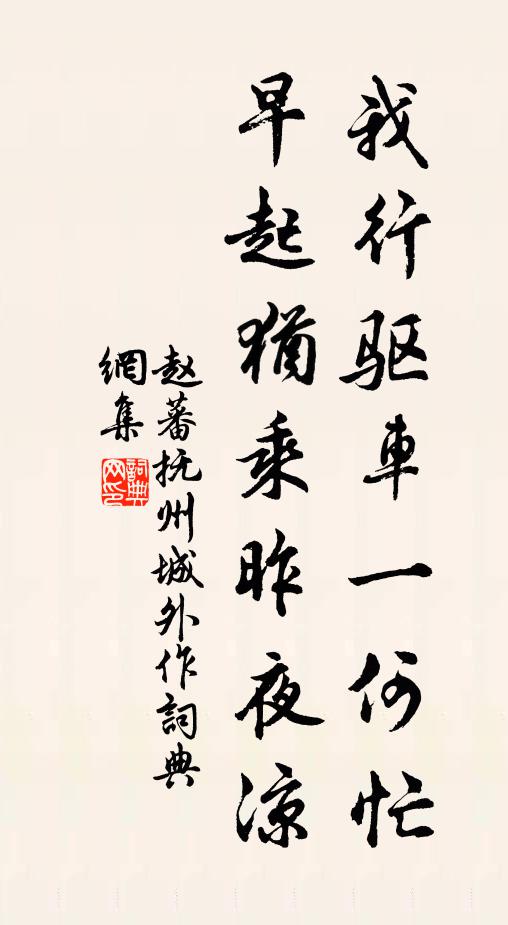 我行驱車一何忙
早起猶乘昨夜涼
赵蕃抚州城外作詞典
網集
詞典
网印